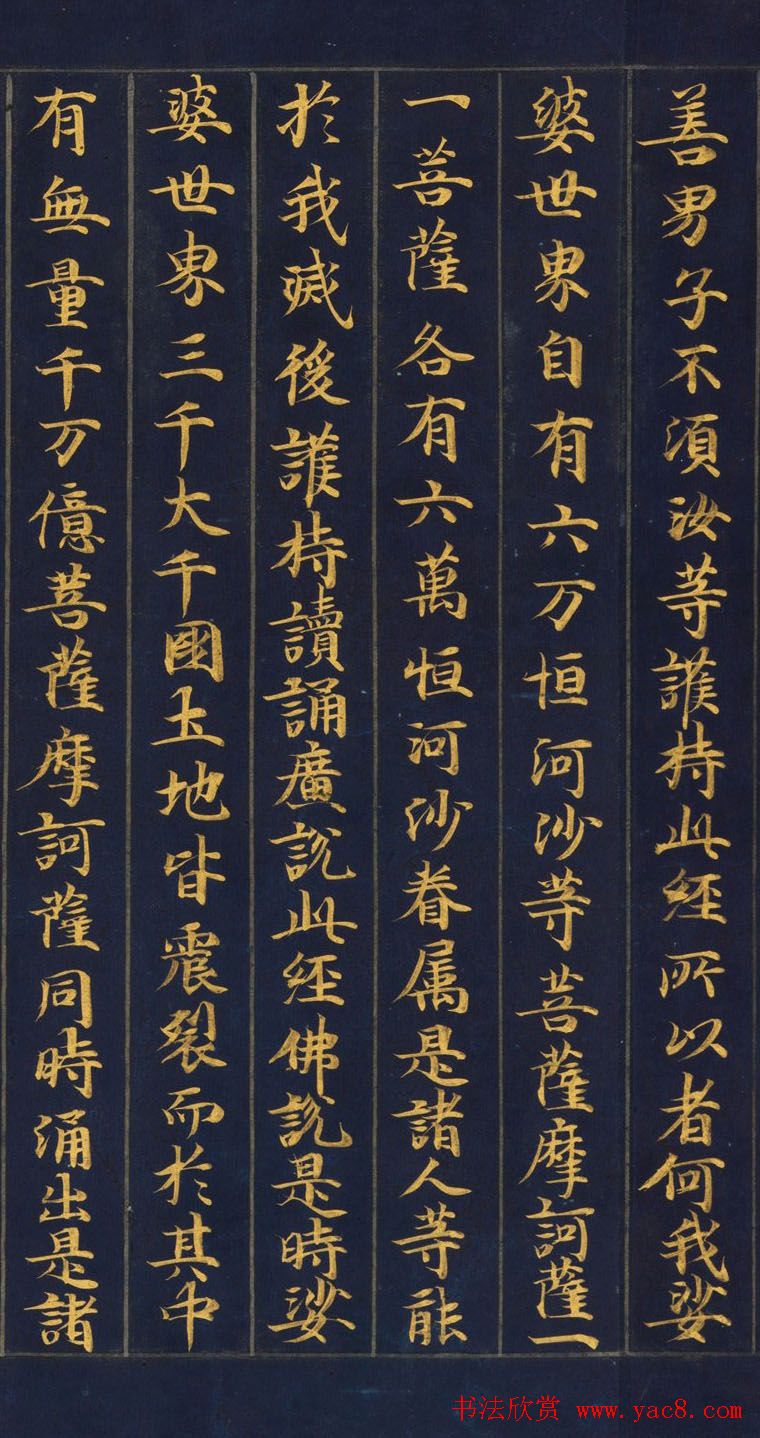 善男子不須汝等護持此經所以者何我娑
婆世界自有六万恒河沙等菩薩摩訶薩一
一菩薩各有六萬恒河沙眷属是諸人等能
於我滅後護持讀誦廣說此經佛說是時娑
婆世界三千大千國土地皆震裂而於其中
有無量千万億菩薩摩訶薩同時涌出是諸
书法欣赏 www.yac8.com